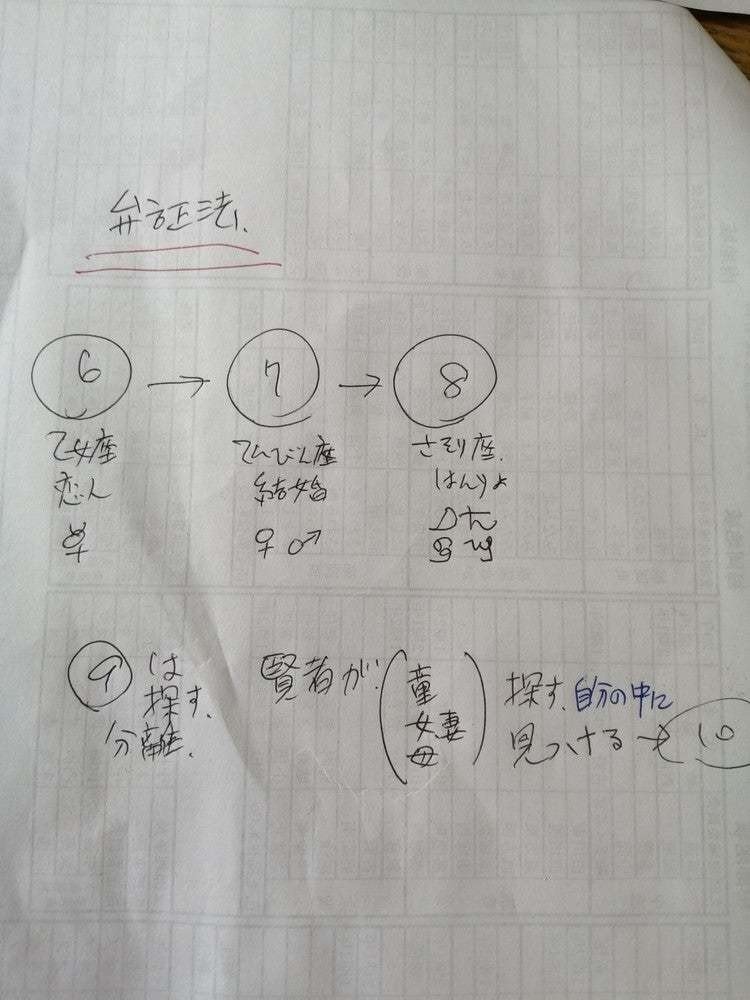 弁証法.
6 → 7 → 8
乙女座 てんびん座 さそり座.
恋人 結婚 はんりょ
♀ ♀♂
9 は 賢者が 童 探す. 自分の中に
探す. 女妻 見つける → 10
分離. 母